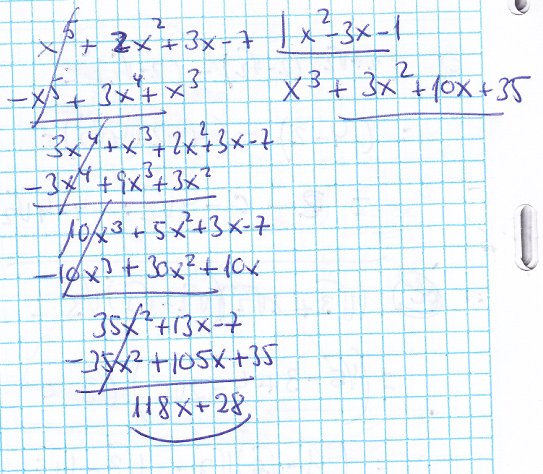 x⁵ + 2x² + 3x - 7 | x² - 3x - 1
- x⁵ + 3x⁴ + x³
x³ + 3x² + 10x + 35
3x⁴ + x³ + 2x² + 3x - 7
- 3x⁴ + 9x³ + 3x²
10x³ + 5x² + 3x - 7
- 10x³ + 30x² + 10x
35x² + 13x - 7
- 35x² + 105x + 35
118x + 28